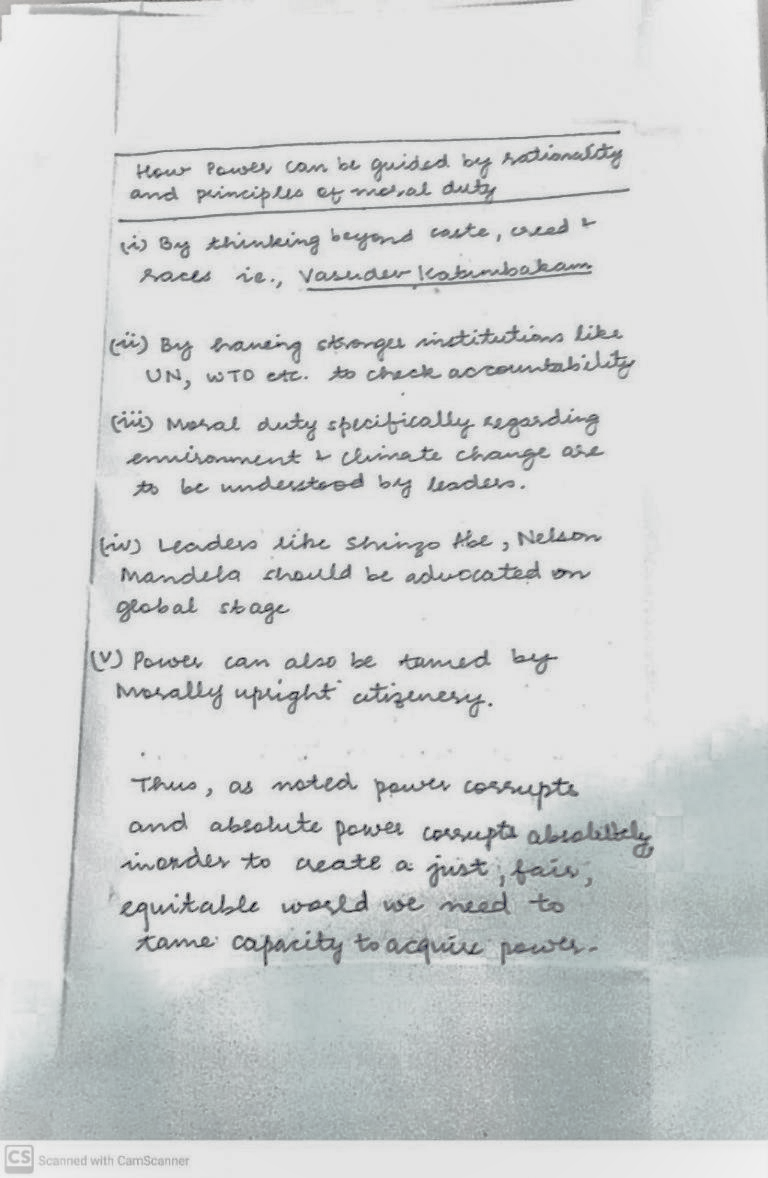 How Power can be guided by rationality
and principles of moral duty
(i) By thinking beyond caste, creed &
races ie., Vasudev Katumbakam
(ii) By having stronger institutions like
UN, WTO etc. to check accountability
(iii) Moral duty specifically regarding
environment & climate change are
to be understood by leaders.
(iv) Leaders like Shinzo Abe, Nelson
Mandela should be advocated on
global stage
(v) Power can also be tamed by
Morally upright citizenery.
Thus, as noted power corrupts
and absolute power corrupts absolutely
inorder to create a just, fair,
equitable world we need to
tame capacity to acquire power.
CS Scanned with CamScanner